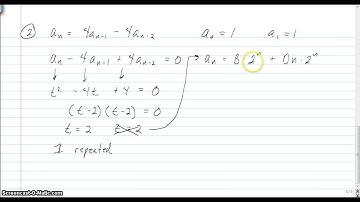 ② aₙ = 4aₙ₋₁ - 4aₙ₋₂ a₀ = 1 a₁ = 1
aₙ - 4aₙ₋₁ + 4aₙ₋₂ = 0 → aₙ = B · 2ⁿ + Dn · 2ⁿ
↓ ↓ ↓
t² - 4t + 4 = 0
(t-2)(t-2) = 0
t = 2 t = 2
1 repeated
Screencast-O-Matic.com